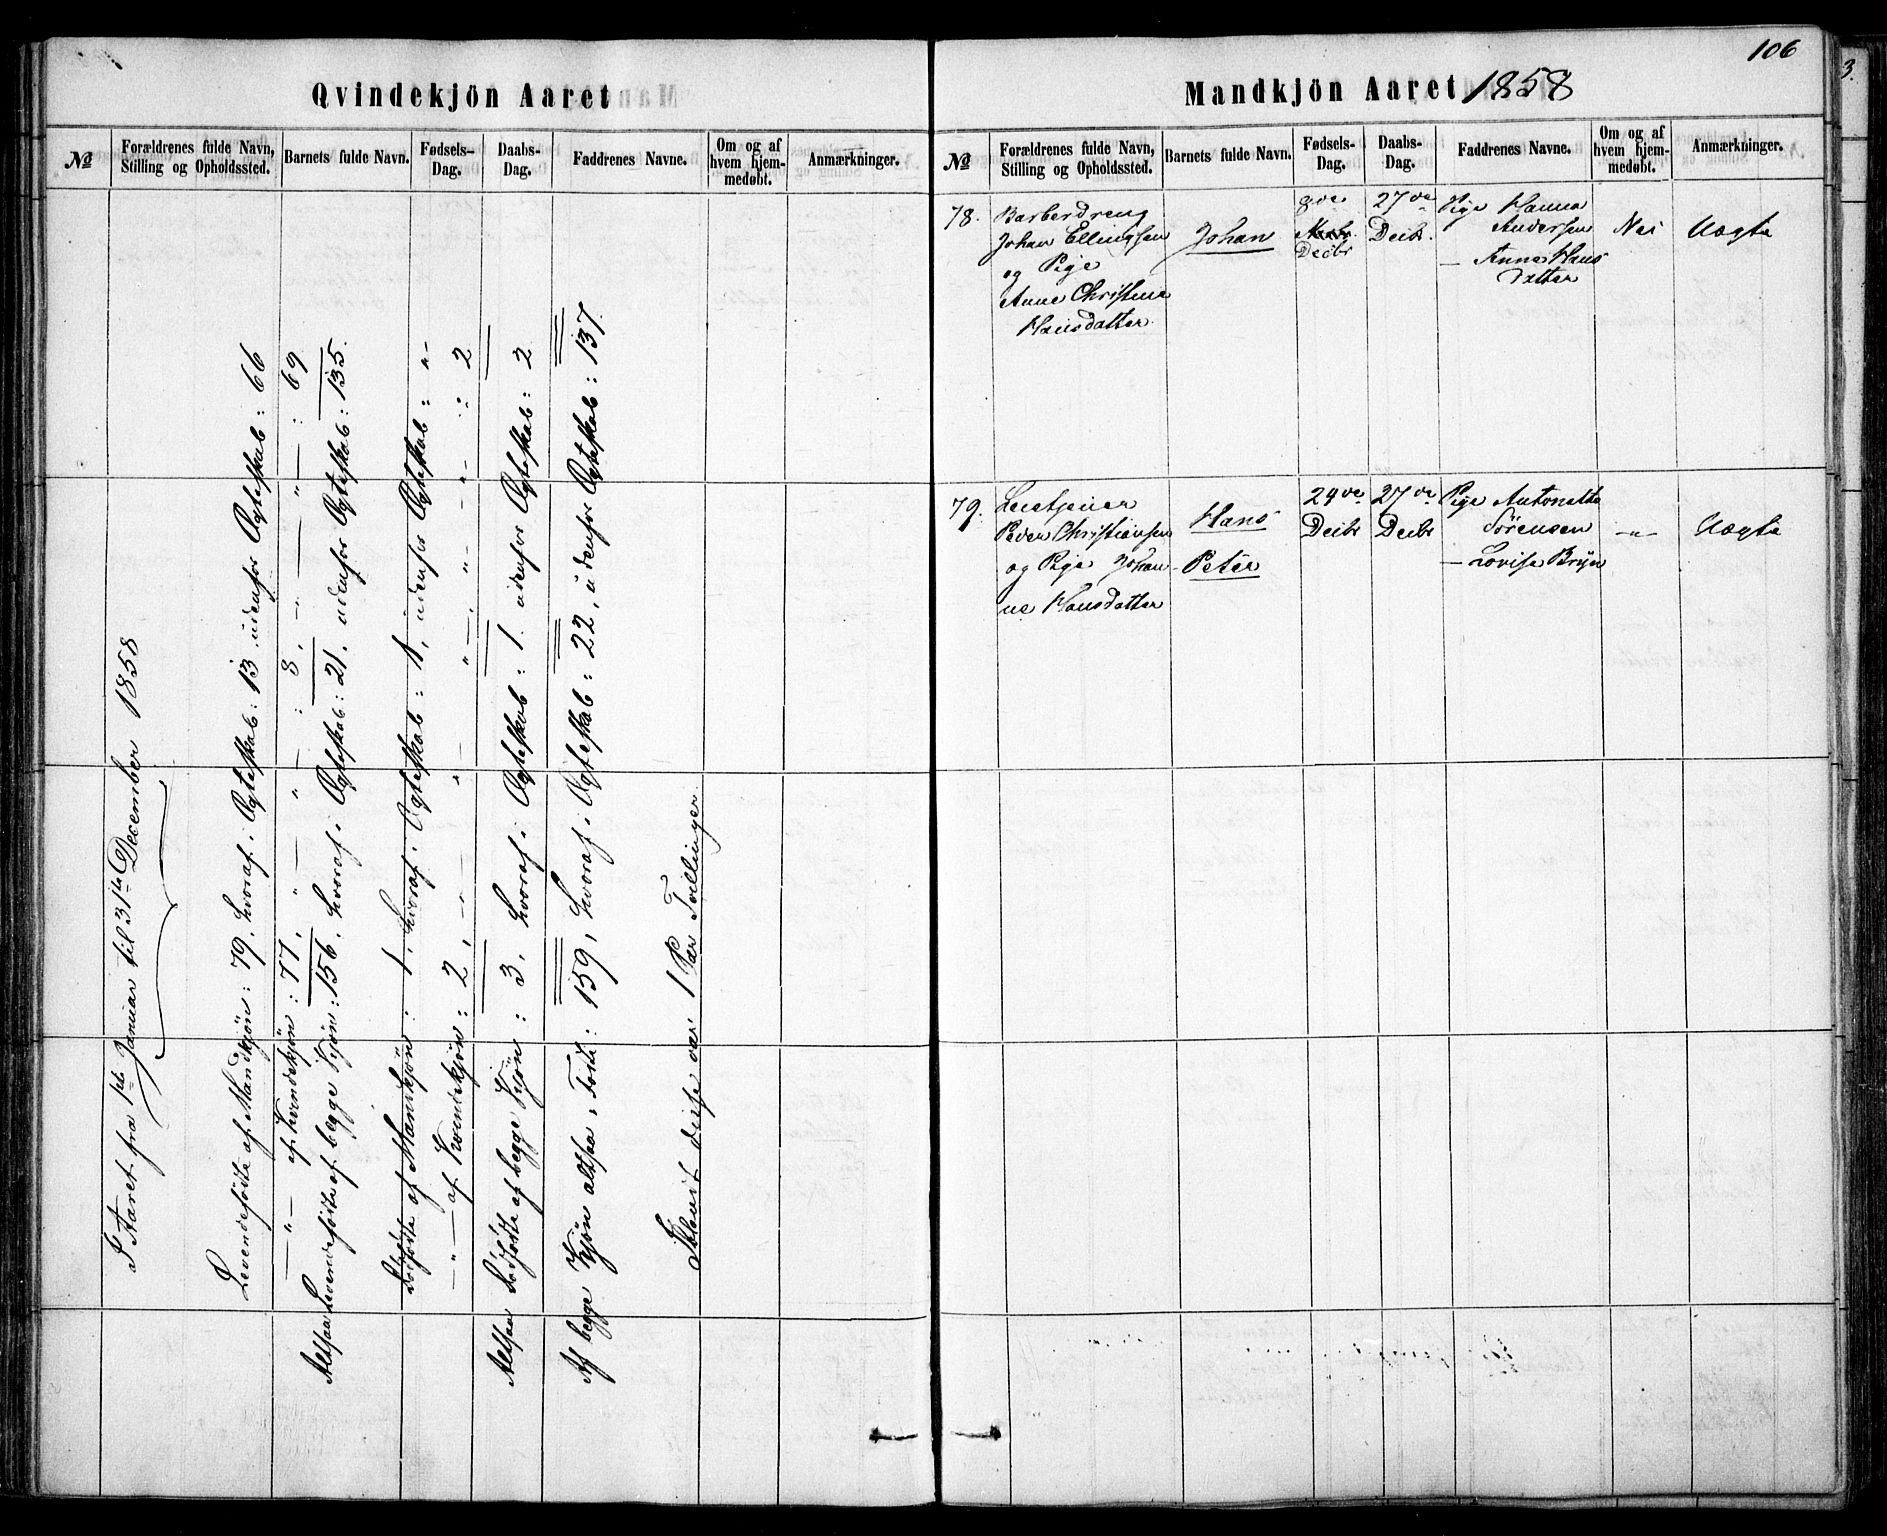 Qvindekjön Aaret
№
Forældrenes fulde Navn, Stilling og Opholdssted.
Barnets fulde Navn.
Fødsels-Dag.
Daabs-Dag.
Faddrenes Navne.
Om og af hvem hjem-medøbt.
Anmærkninger.
I Aaret fra 1ste Januar til 31te December 1858
Levendefödte af Mandkjön: 79, hvoraf i Ægteskab: 13. udenfor Ægteskab: 66
—"— af Kvindekjön: 77, —"— " — : 8, — " — : 69
Altsaa Levendefödte af begge Kjön: 156. hvoraf i Ægteskab: 21, udenfor Ægteskab: 135.
Dödfödte af Mankjön: 1, hvoraf i Ægteskab: 1, udenfor Ægteskab: "
—"— af Kvindekjön: 2, —"— " —"—, " —"— : 2
Altsaa Dödfödte af begge Kjön: 3, hvoraf i Ægteskab: 1. udenfor Ægteskab: 2
Af begge Kjön altsaa födte: 159, hvoraf i Ægteskab: 22, udenfor Ægteskab: 137.
Iblandt disse var 1 Par Tvillinger.
106
Mandkjön Aaret 1858
№
Forældrenes fulde Navn, Stilling og Opholdssted.
Barnets fulde Navn.
Fødsels-Dag.
Daabs-Dag.
Faddrenes Navne.
Om og af hvem hjem-medøbt.
Anmærkninger.
78.
Barberdreng
Johan Ellingsen
og Pige
Anne Christine
Hansdatter
Johan
8de
Decbr
27de
Decbr.
Pige Hanna
Andersen
— Anne Hans
datter
Nei
Uægte
79.
Leietjener
Peder Christiansen
og Pige Johan
ne Hansdatter
Hans
Peter
24de
Decbr
27de
Decbr
Pige Antonette
Sörensen
— Lovise Bryn
—"—
Uægte
3.